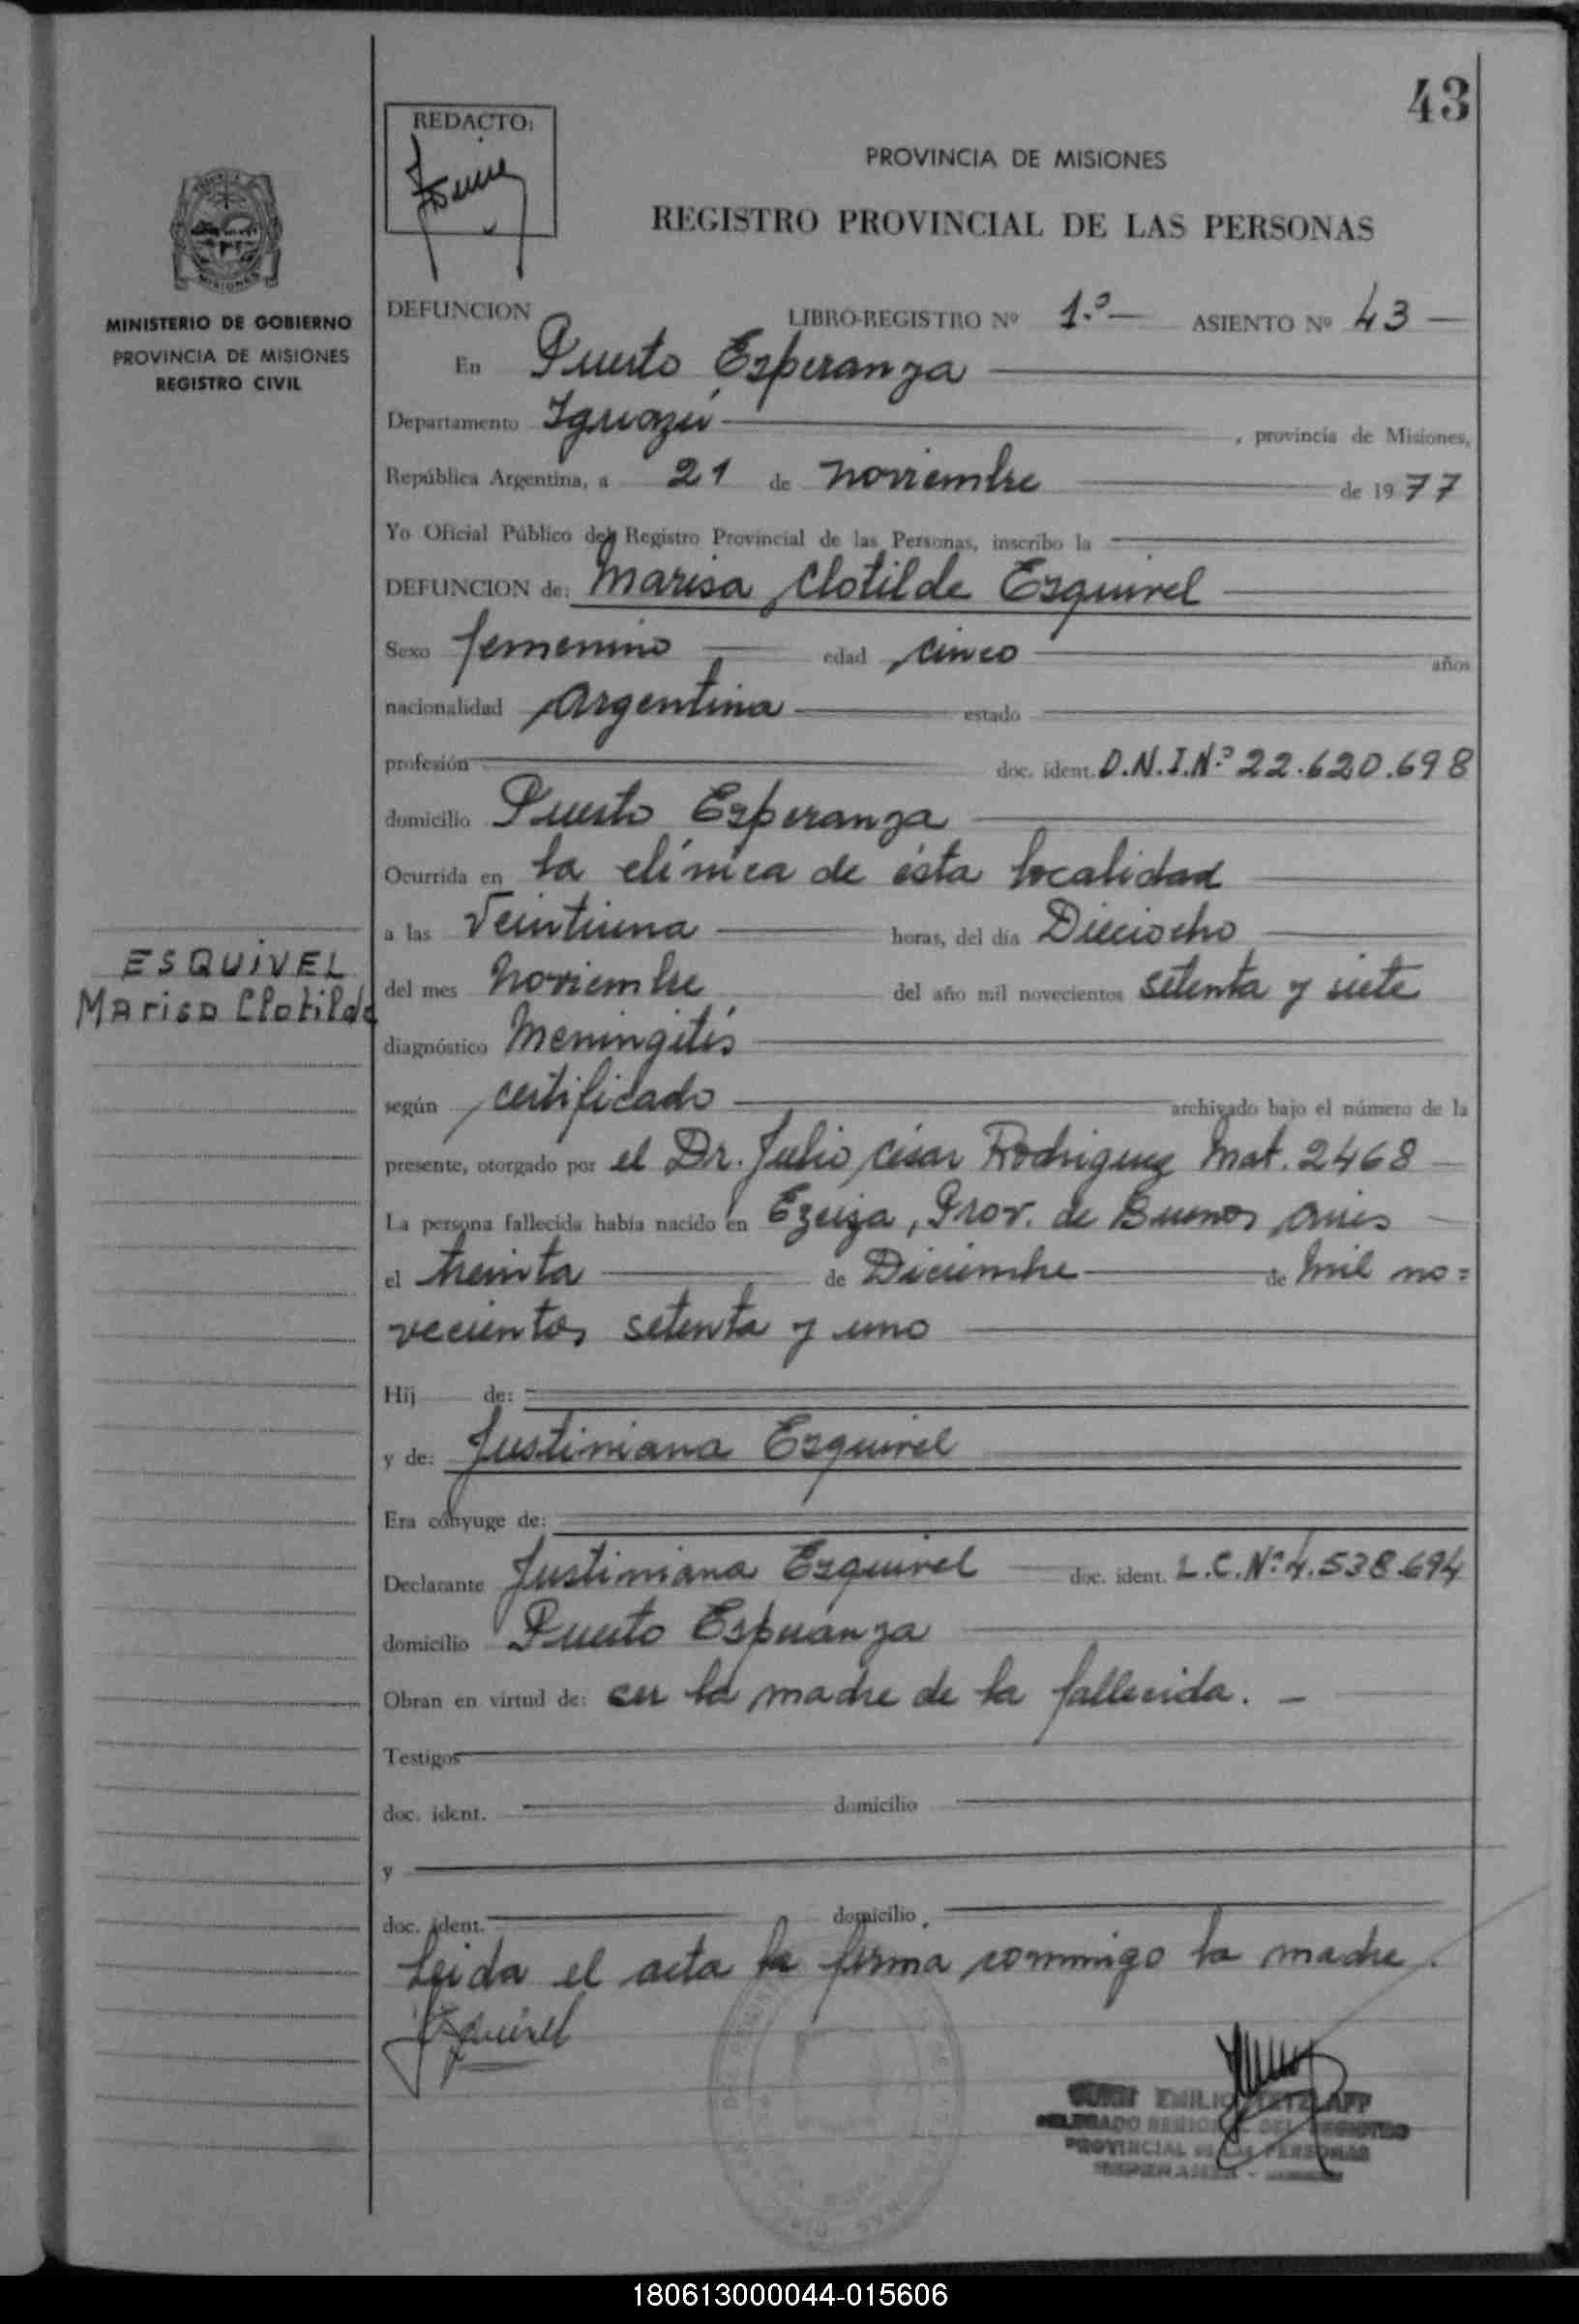 43
REDACTO:
PROVINCIA DE MISIONES
REGISTRO PROVINCIAL DE LAS PERSONAS
MINISTERIO DE GOBIERNO
PROVINCIA DE MISIONES
REGISTRO CIVIL
DEFUNCION LIBRO-REGISTRO Nº 1.º — ASIENTO Nº 43 —
En Puerto Esperanza
Departamento Iguazú , provincia de Misiones,
República Argentina, a 21 de noviembre de 1977
Yo Oficial Público del Registro Provincial de las Personas, inscribo la
DEFUNCION de: Marisa Clotilde Esquivel
Sexo femenino edad cinco años
nacionalidad Argentina estado
profesión doc. ident. D.N.I.Nº 22.620.698
domicilio Puerto Esperanza
Ocurrida en la clínica de ésta localidad
a las Veintiuna horas, del día Dieciocho
ESQUIVEL
Marisa Clotilde
del mes Noviembre del año mil novecientos setenta y siete
diagnóstico Meningitis
según certificado archivado bajo el número de la
presente, otorgado por el Dr. Julio César Rodriguez Mat. 2468 —
La persona fallecida había nacido en Ezeiza, Prov. de Buenos Aires —
el treinta de Diciembre de mil no=
vecientos setenta y uno
Hij de:
y de: Justiniana Esquivel
Era cónyuge de:
Declarante Justiniana Esquivel doc. ident. L.C.Nº 4.538.694
domicilio Puerto Esperanza
Obran en virtud de: ser la madre de la fallecida. —
Testigos
doc. ident. domicilio
y
doc. ident. domicilio
Leida el acta la firma conmigo la madre.
JEsquivel
EMILIO
DELEGADO DEL REGISTRO
PROVINCIAL DE LAS PERSONAS
ESPERANZA
180613000044-015606